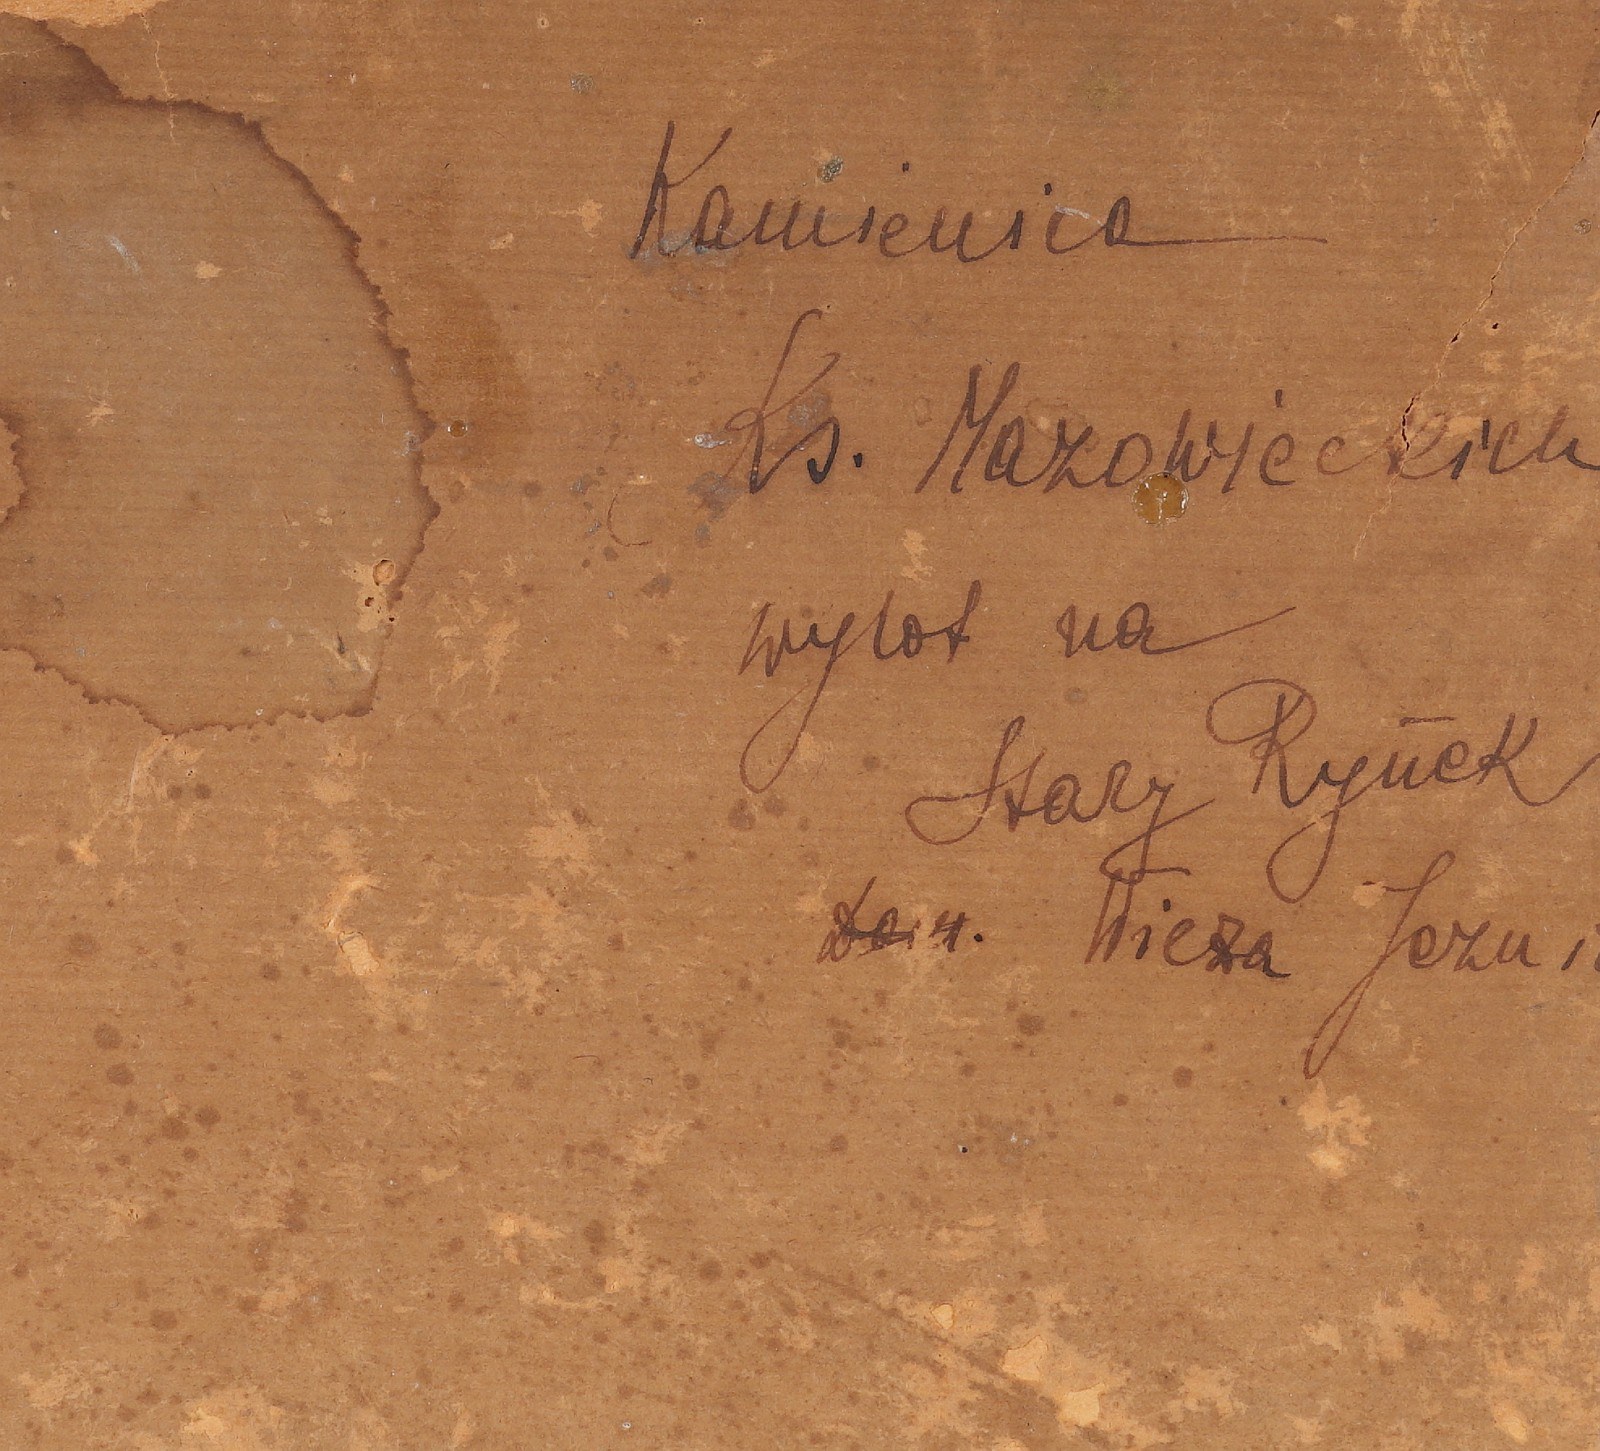 Kamienica
Ks. Mazowieckich
wylot na
Stary Rynek
Wieza Jezui